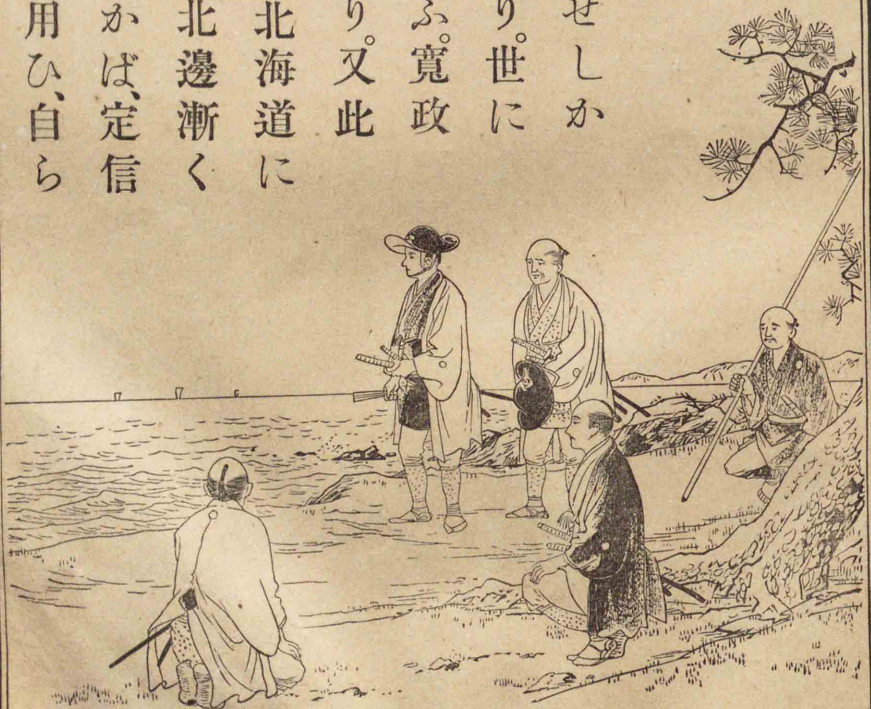 せしか
り。世に
ふ。寛政
り。又此
北海道に
北邊漸く
かば、定信
用ひ、自ら